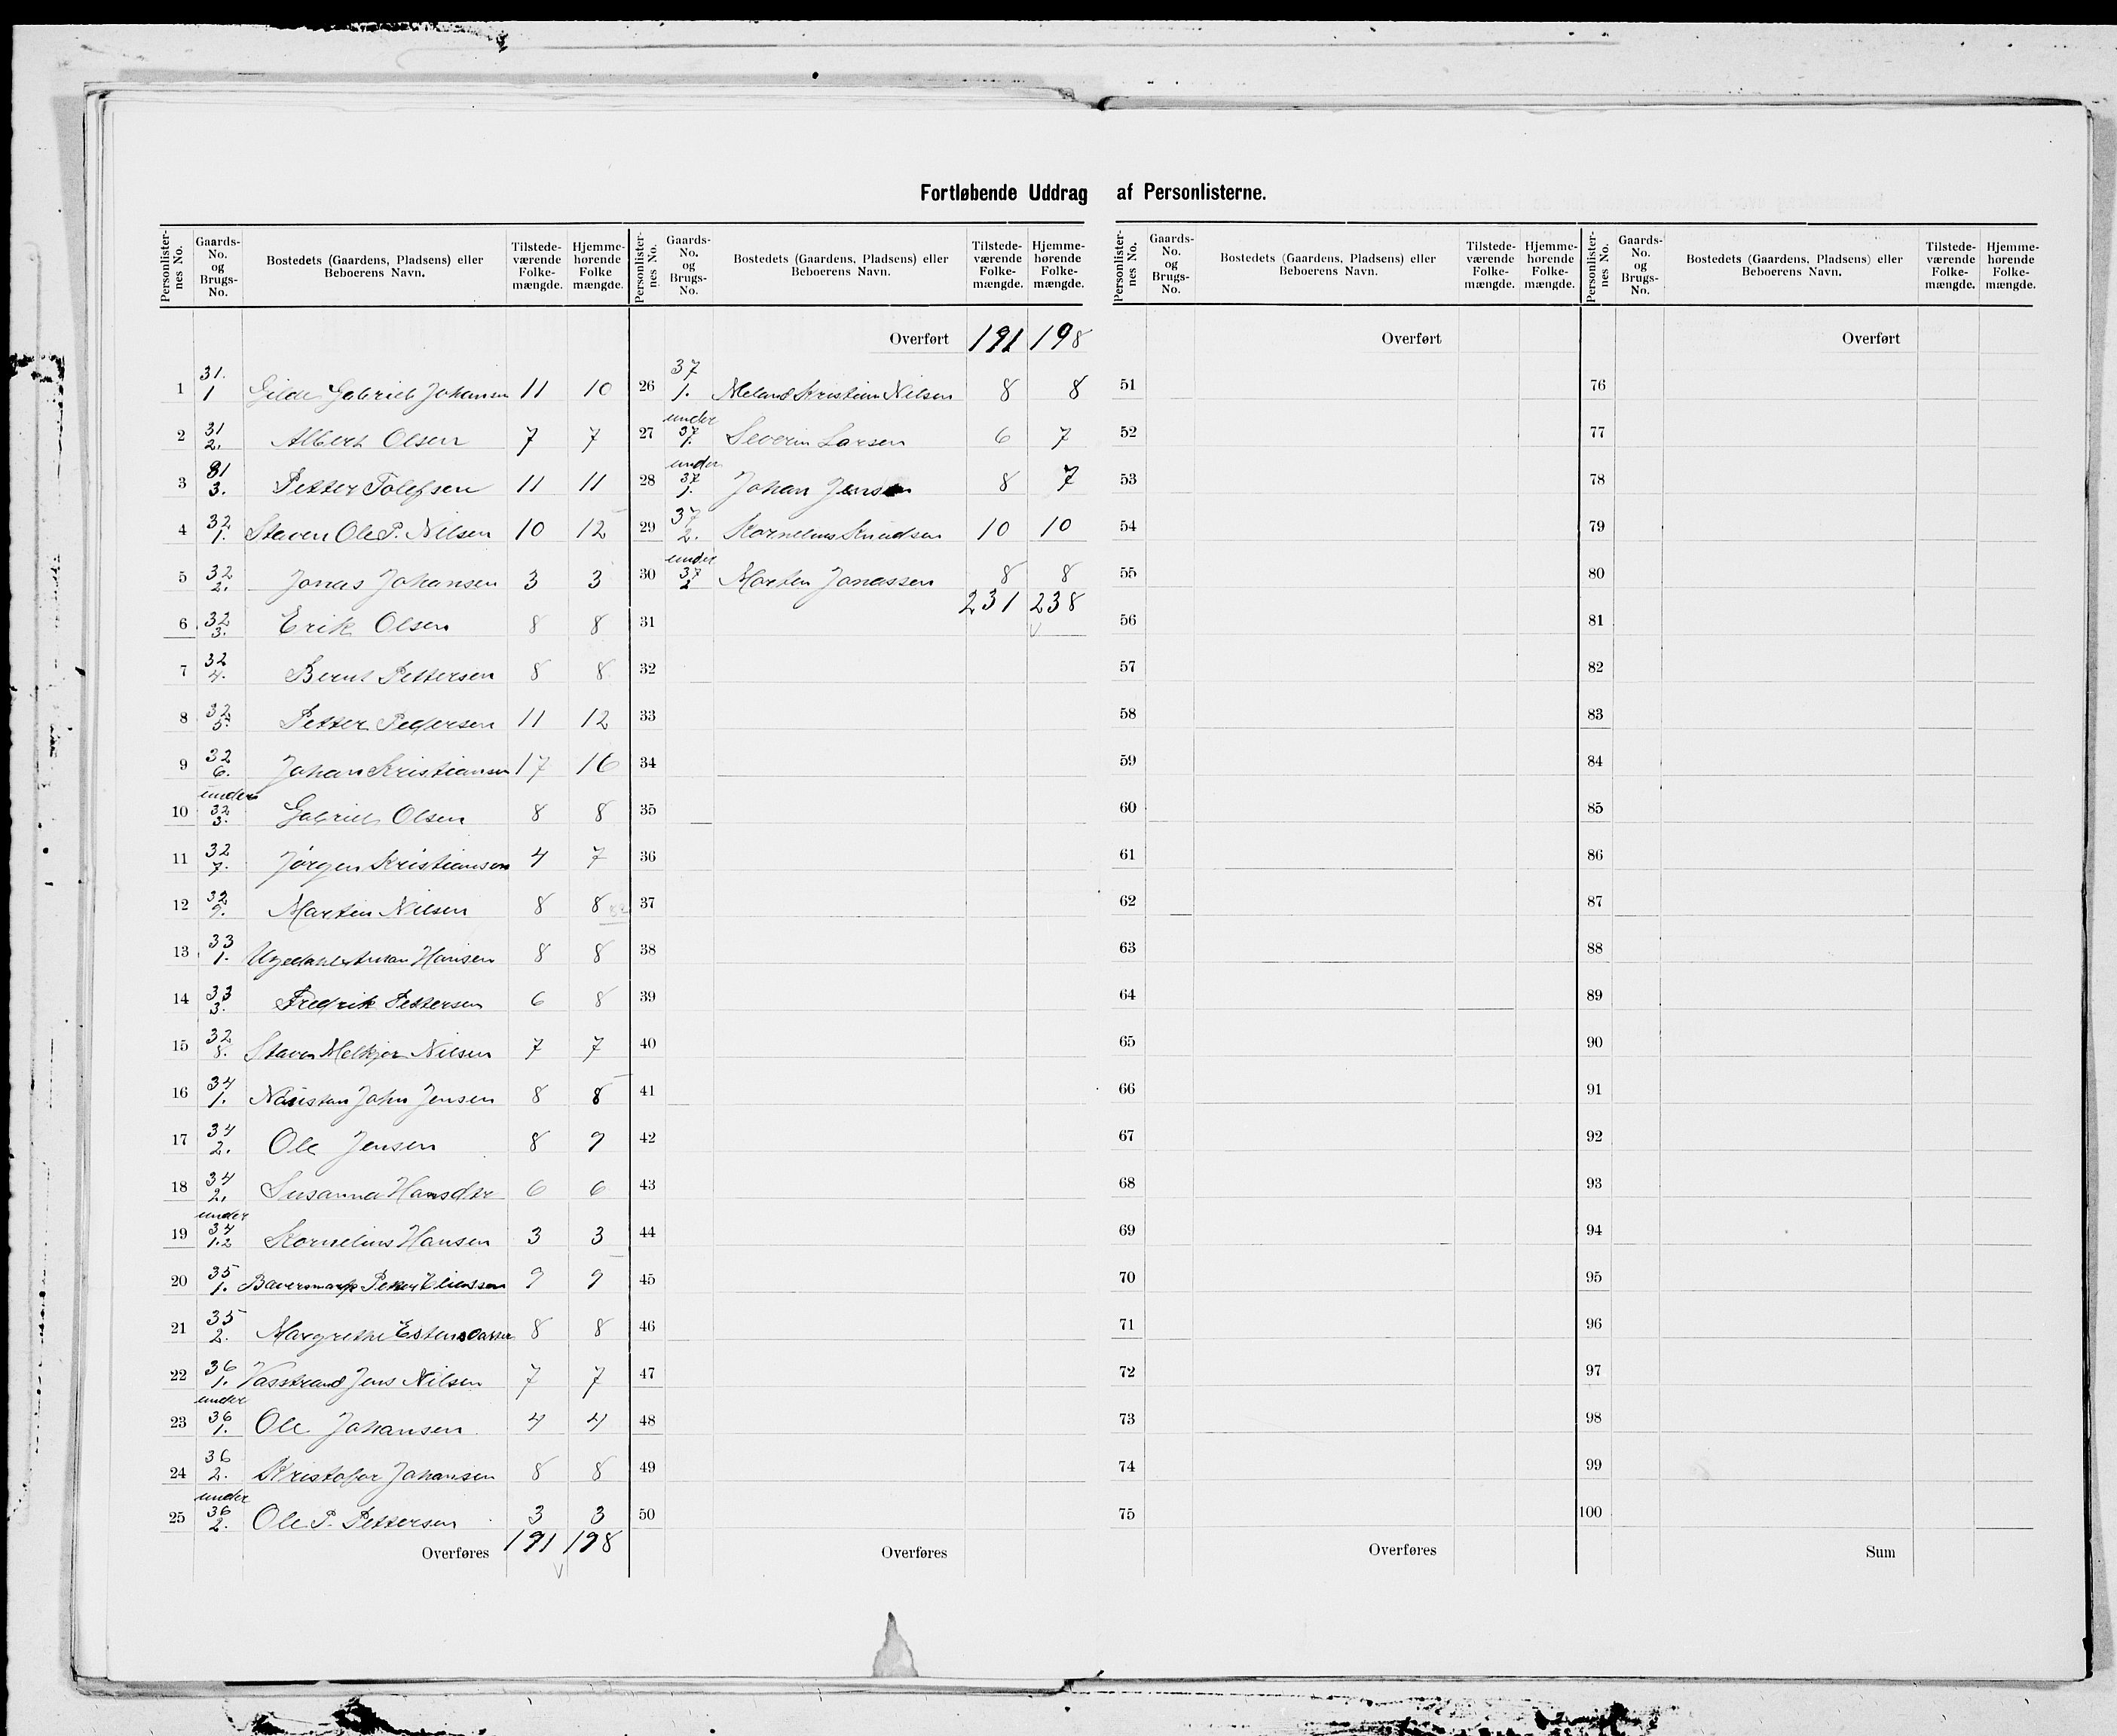 Fortløbende Uddrag af Personlisterne.
Personlister-nes No. | Gaards-No. og Brugs-No. | Bostedets (Gaardens, Pladsens) eller Beboerens Navn. | Tilstede-værende Folke-mængde. | Hjemme-hørende Folke mængde.
1 31. 1 Gilde Gabriel Johansen 11 10
2 31 2. Albert Olsen 7 7
3 31 3. Petter Tolefsen 11 11
4 32 1. Staven Ole P. Nilsen 10 12
5 32 2. Jonas Johansen 3 3
6 32 3. Erik Olsen 8 8
7 32 4. Bernt Pettersen 8 8
8 32 5. Petter Pedersen 11 12
9 32 6. Johan Kristiansen 17 16
10 under 32 3. Gabriel Olsen 8 8
11 32 7. Jørgen Kristiansen 4 7
12 32 9. Martin Nilsen 8 8
13 33 1. Hansen 8 8
14 33 3. Fredrik Pettersen 6 8
15 32 8. Staven Melkjor Nilsen 7 7
16 34 1. John Jensen 8 8
17 34 2. Ole Jensen 8 9
18 34 2. Susanna Hansdtr 6 6
19 under 34 1.2 Kornelius Hansen 3 3
20 35 1. Petter Eliassen 9 9
21 35 2. Margrethe 8 8
22 36 1. Vasstrand Jens Nilsen 7 7
23 under 36 1. Ole Johansen 4 4
24 36 2. Kristofor Johansen 8 8
25 under 36 2. Ole P. Pettersen 3 3
Overføres 191 198
Personlister-nes No. | Gaards-No. og Brugs-No. | Bostedets (Gaardens, Pladsens) eller Beboerens Navn. | Tilstede-værende Folke-mængde. | Hjemme-hørende Folke-mængde.
Overført 191 198
26 37 1. Meland Kristian Nilsen 8 8
27 under 37 1. Severin Larsen 6 7
28 under 37 1. Johan Jensen 8 7
29 37 2. Kornelius Knudsen 10 10
30 under 37 2 Morten Jonassen 8 8
231 238
31
32
33
34
35
36
37
38
39
40
41
42
43
44
45
46
47
48
49
50
Overføres
Personlister-nes No. | Gaards-No. og Brugs-No. | Bostedets (Gaardens, Pladsens) eller Beboerens Navn. | Tilstede-værende Folke-mængde. | Hjemme-hørende Folke-mængde.
Overført
51
52
53
54
55
56
57
58
59
60
61
62
63
64
65
66
67
68
69
70
71
72
73
74
75
Overføres
Personlister-nes No. | Gaards-No. og Brugs-No. | Bostedets (Gaardens, Pladsens) eller Beboerens Navn. | Tilstede-værende Folke-mængde. | Hjemme-hørende Folke-mængde.
Overført
76
77
78
79
80
81
82
83
84
85
86
87
88
89
90
91
92
93
94
95
96
97
98
99
100
Sum